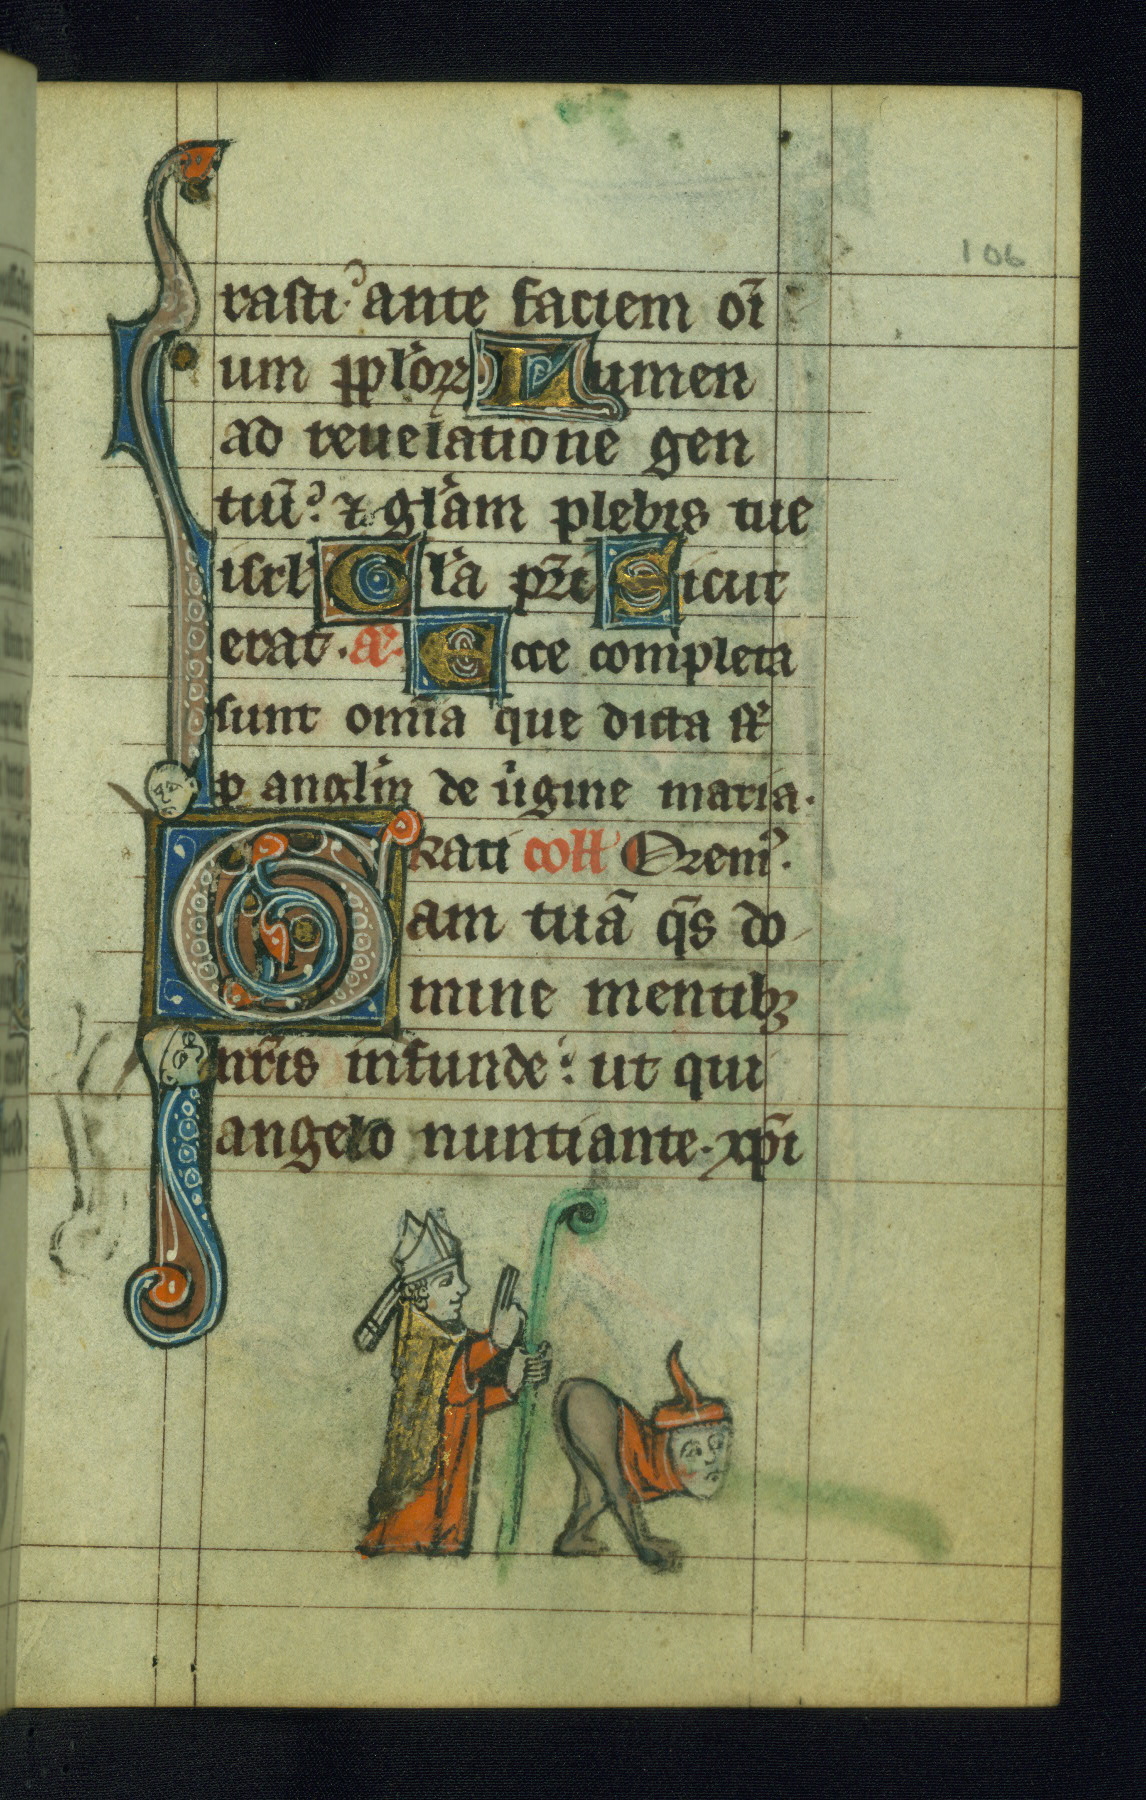 106
rasti ante faciem oı̃
um pplor̃ Lumen
ad reuelatione gen
tiũ ⁊ gl̃am plebis tue
isrl̃ Gl̃a pr̃i Sicut
erat. añ. Ecce completa
sunt om̃ia que dicta st̃
p angl̃m de ũgine maria.
Grati coll̃ Orem̃.
am tuã q̃s do
mine mentibꝫ
nr̃is infunde: ut qui
angelo nuntiante. xp̃i